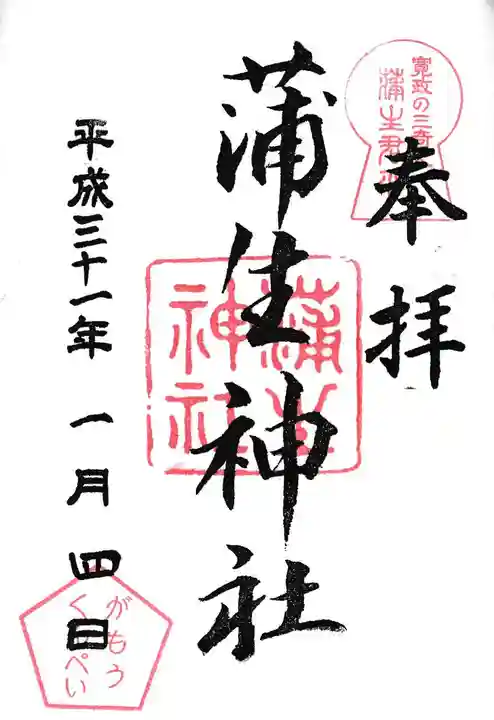 奉拝
寛政の三奇
蒲生君
蒲生神社
蒲生
神社
平成三十一年 一月四日
がもう
くんぺい